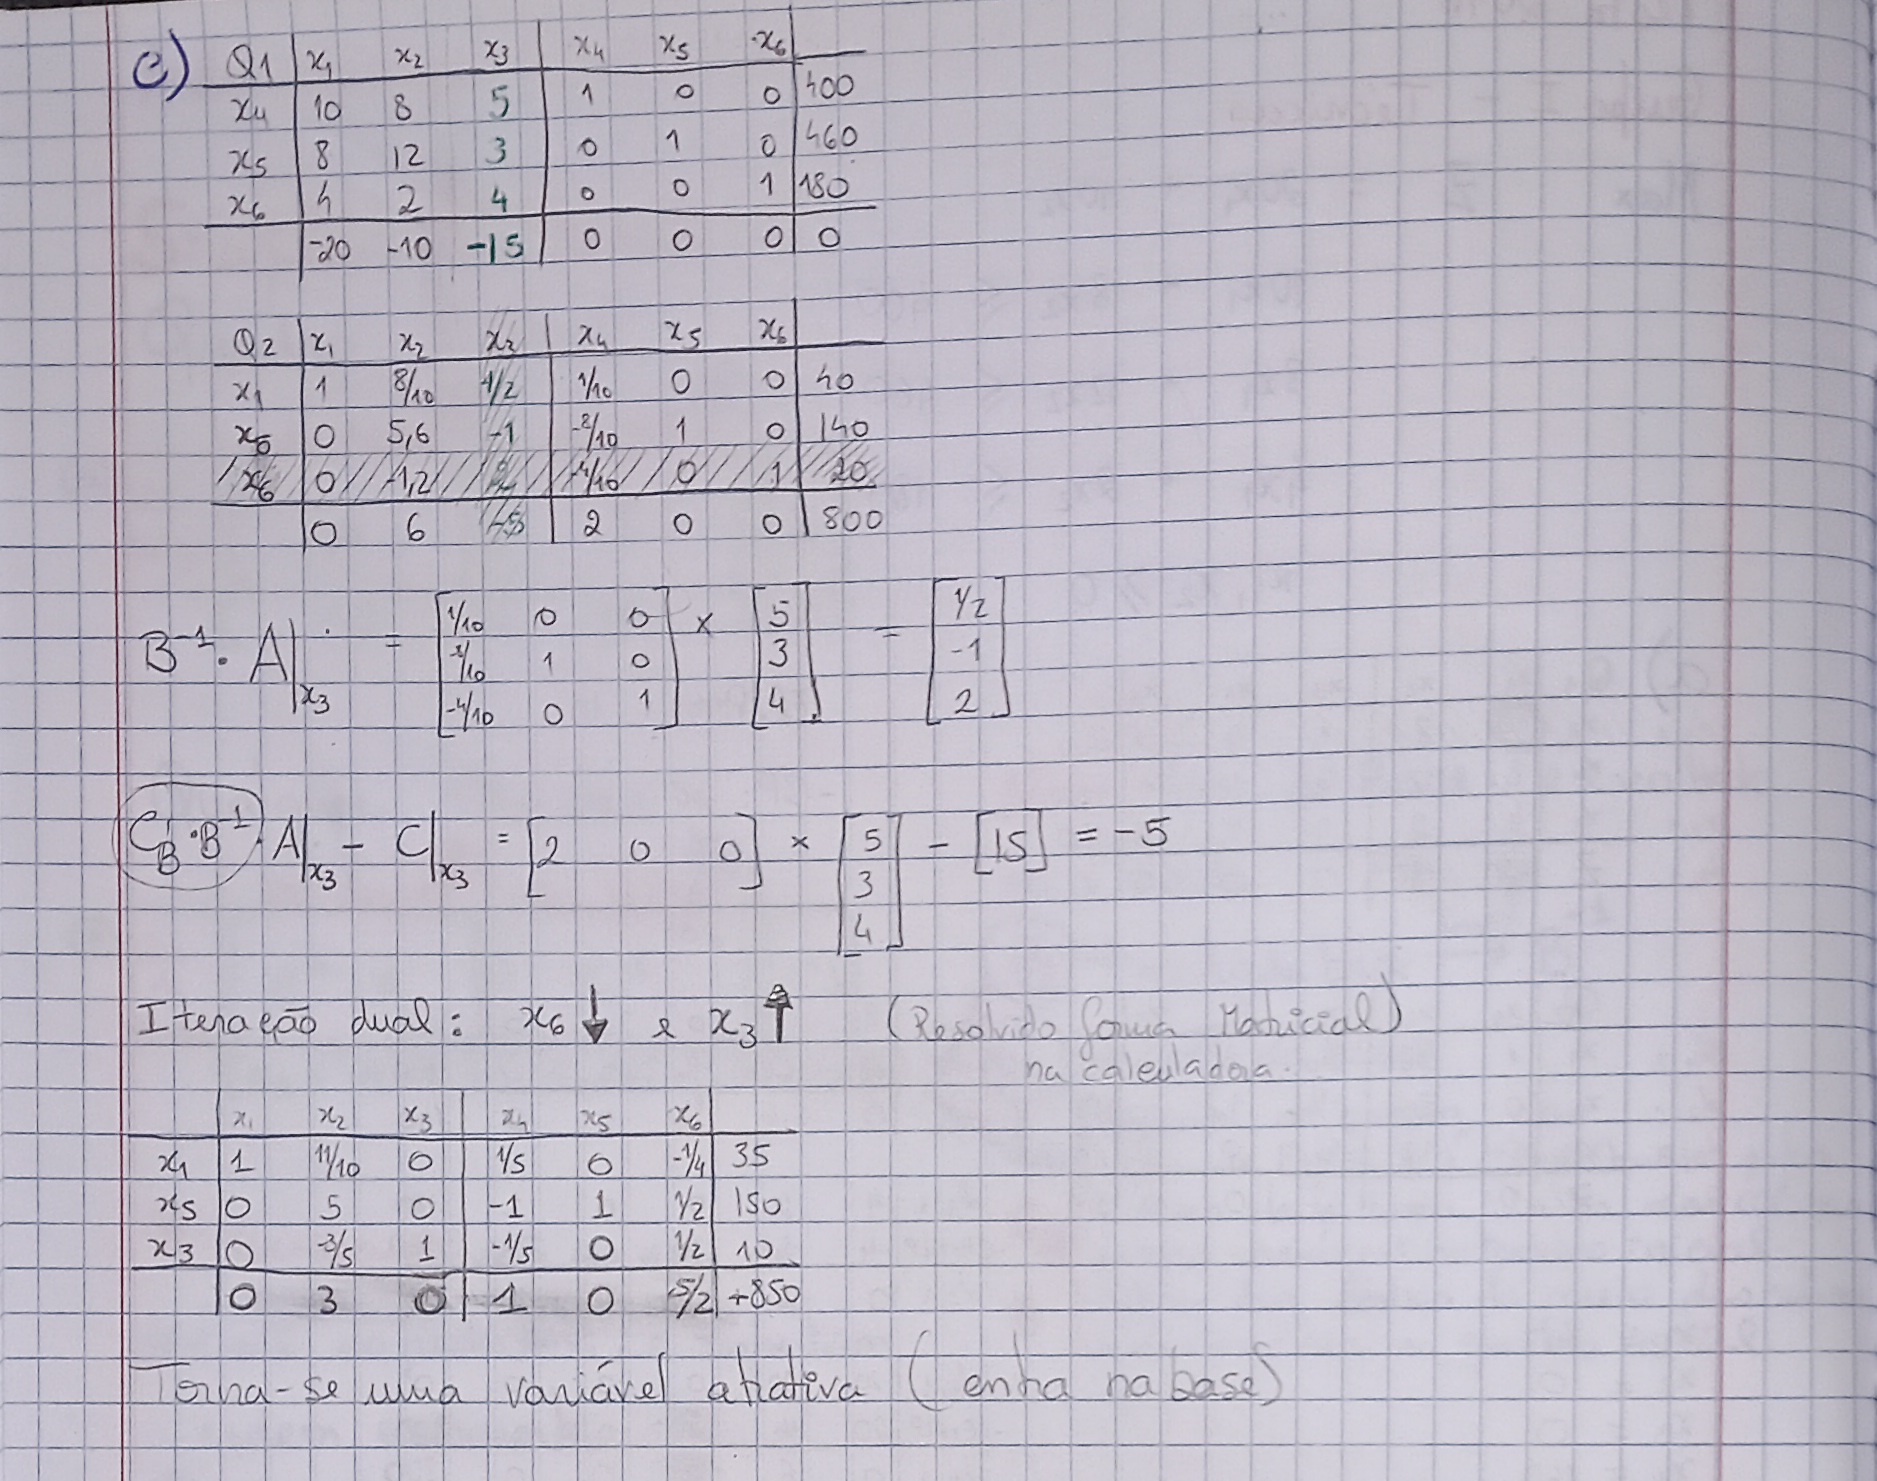 c) Q1 x₁ x₂ x₃ x₄ x₅ x₆
x₄ 10 8 5 1 0 0 400
x₅ 8 12 3 0 1 0 460
x₆ 4 2 4 0 0 1 180
-20 -10 -15 0 0 0 0
Q2 x₁ x₂ x₃ x₄ x₅ x₆
x₁ 1 8/10 1/2 1/10 0 0 40
x₅ 0 5,6 -1 -8/10 1 0 140
x₆ 0 -1,2 2 -4/10 0 1 20
0 6 -5 2 0 0 800
B⁻¹. A|x₃ = [1/10 0 0; -8/10 1 0; -4/10 0 1] × [5; 3; 4] = [1/2; -1; 2]
C_B.B⁻¹. A|x₃ - C|x₃ = [2 0 0] × [5; 3; 4] - [15] = -5
Iteração dual: x₆ ↓ e x₃ ↑ (Resolvido forma Matricial)
na calculadora.
x₁ x₂ x₃ x₄ x₅ x₆
x₁ 1 11/10 0 1/5 0 -1/4 35
x₅ 0 5 0 -1 1 1/2 150
x₃ 0 -3/5 1 -1/5 0 1/2 10
0 3 0 1 0 5/2 +850
Torna-se uma variável atrativa (entra na base)